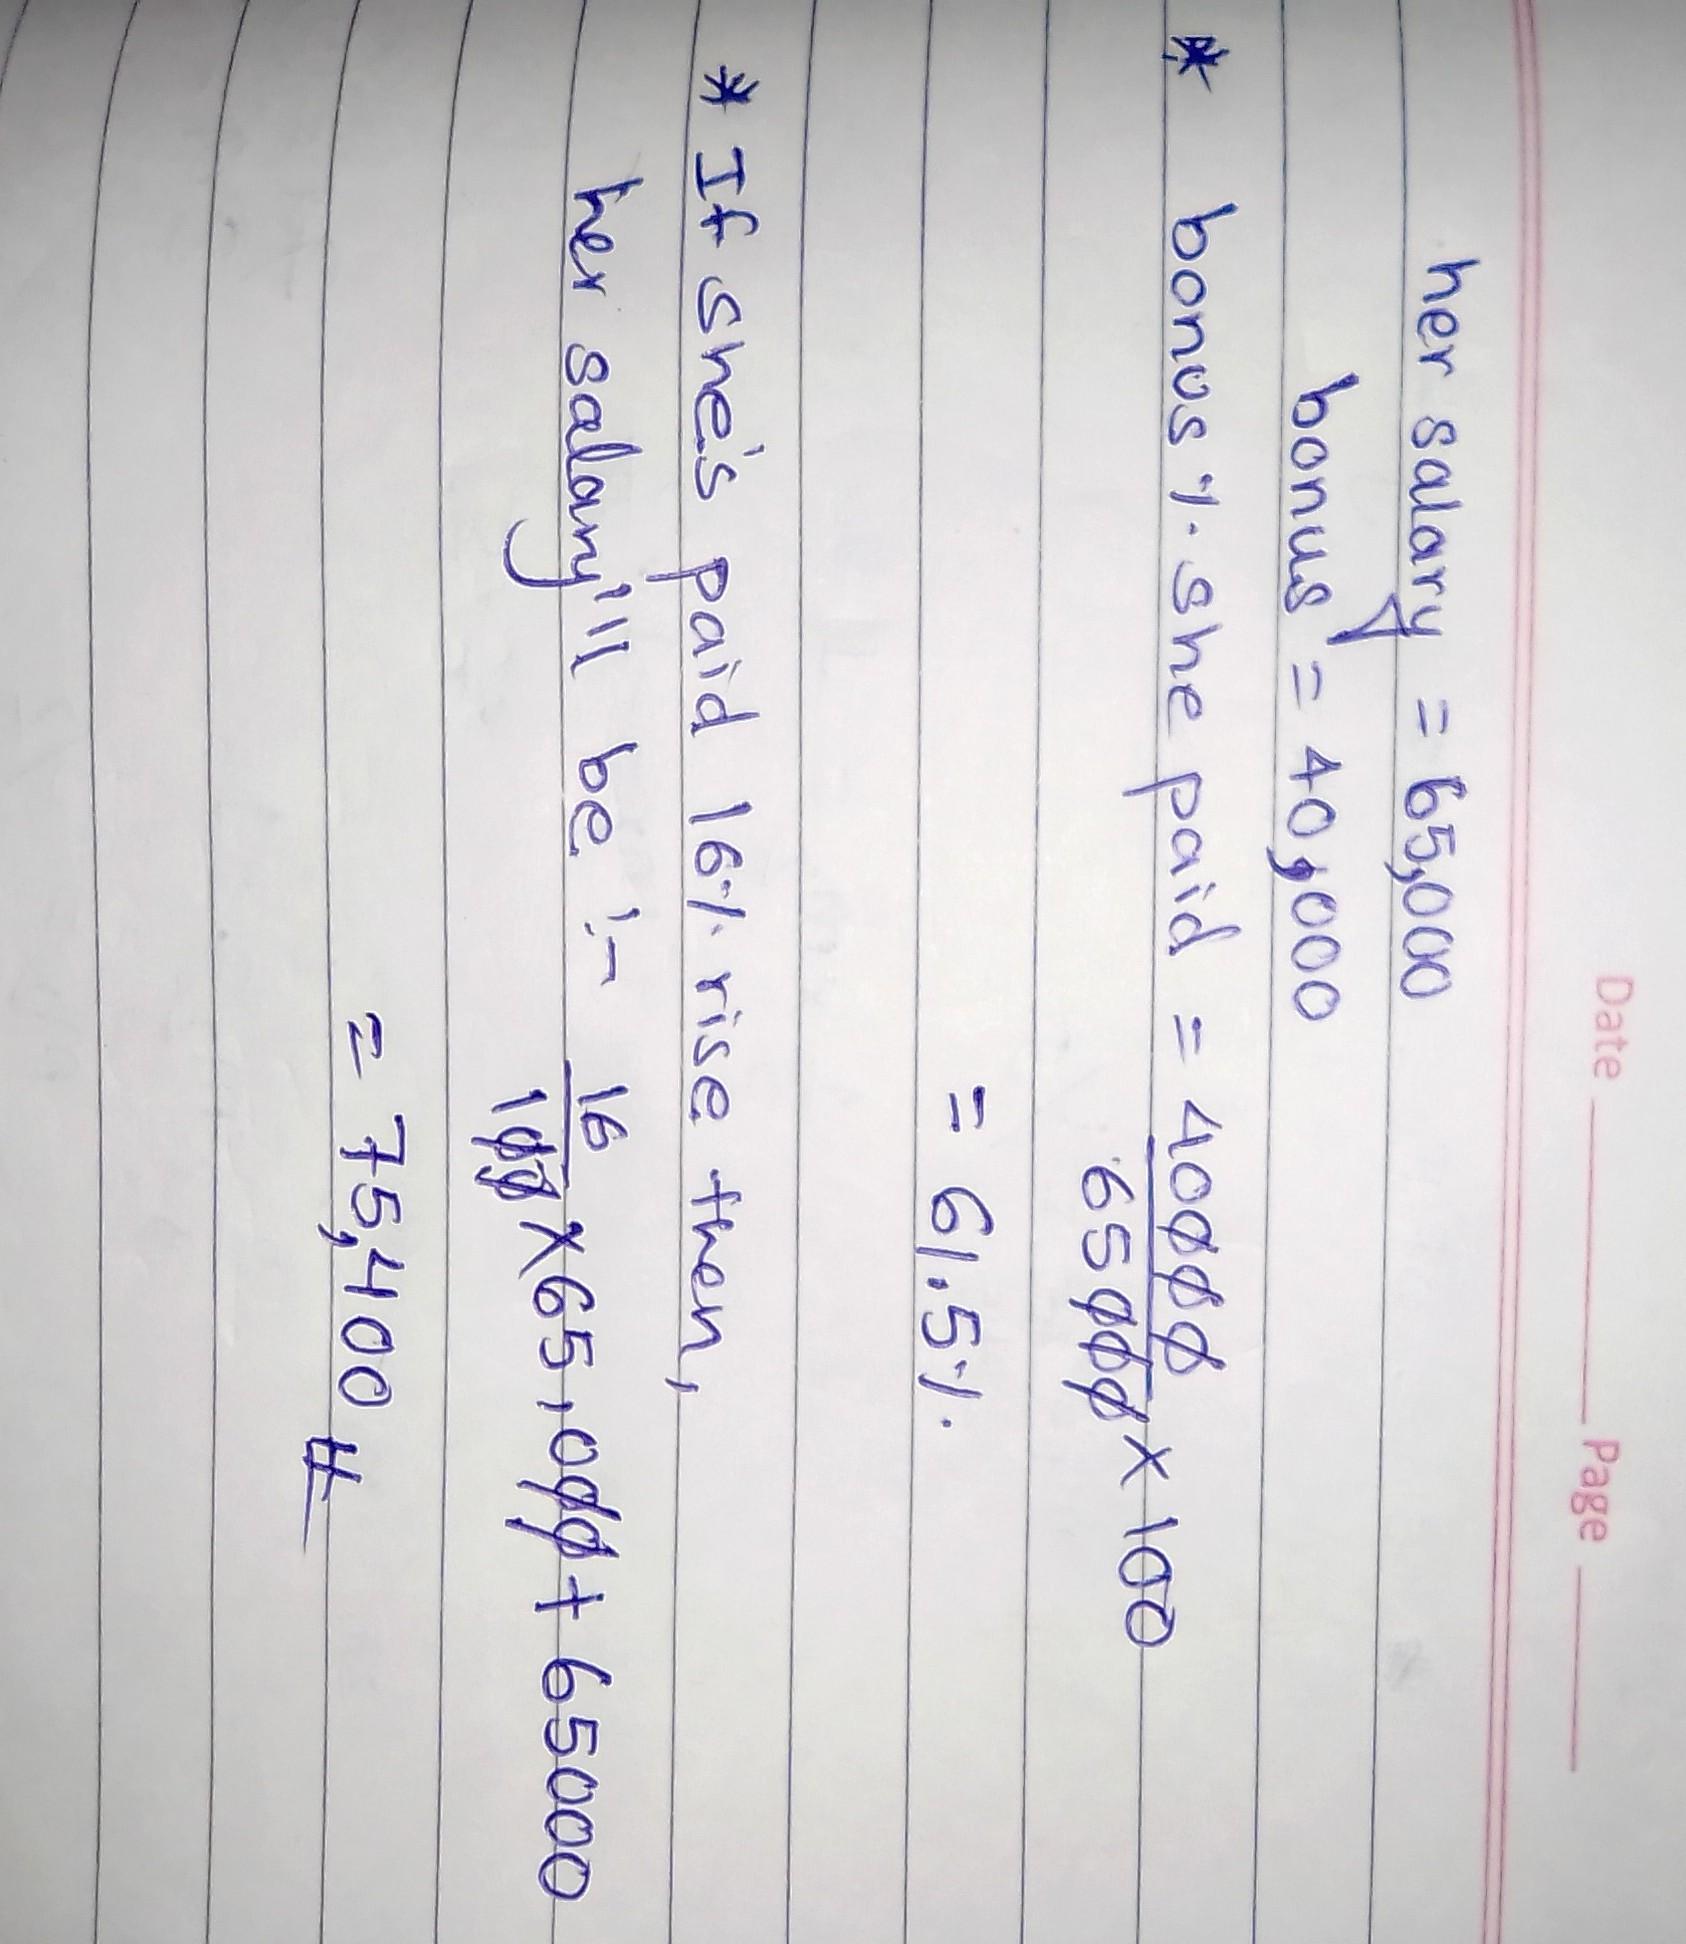 Date Page
her salary = 65,000
bonus = 40,000
* bonus % she paid = 40000/65000 × 100
= 61.5%
* If she's paid 16% rise then,
her salary'll be :- 16/100 × 65,000 + 65000
= 75,400 #